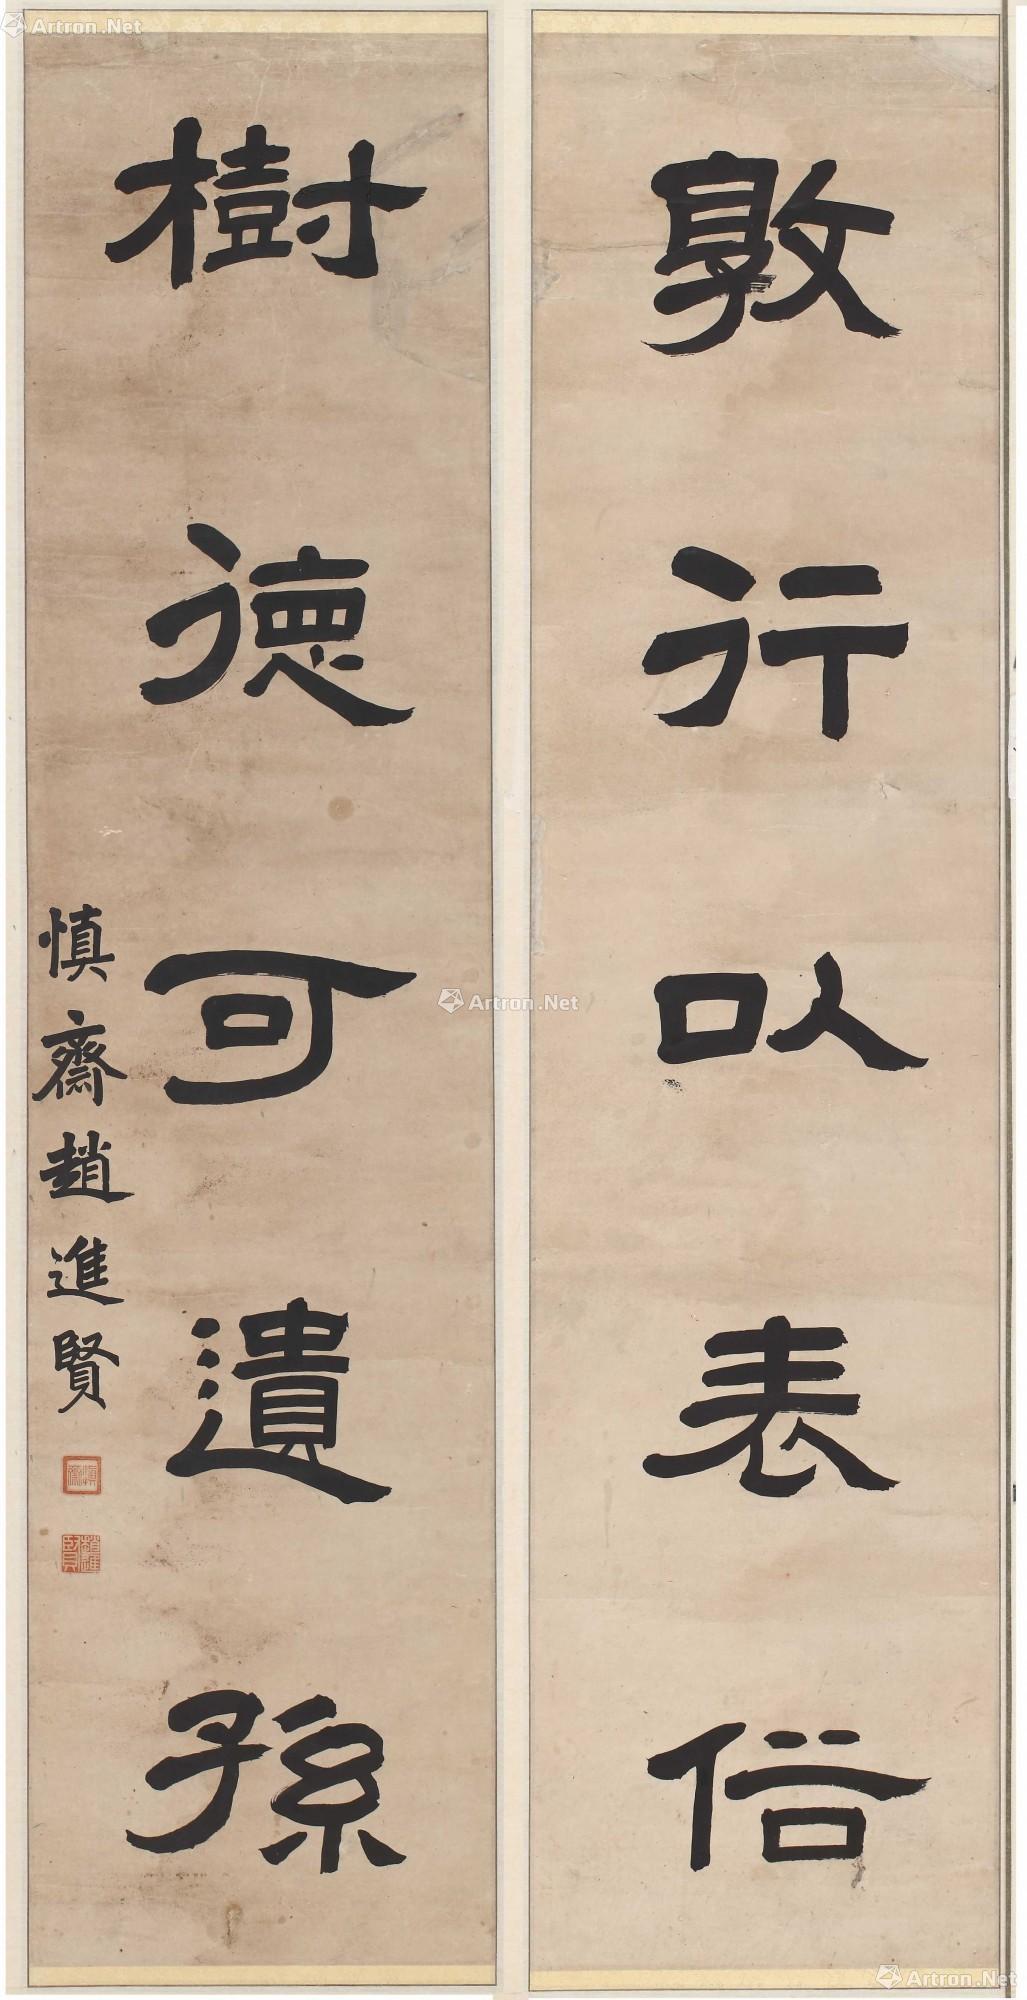 敦行以表俗
樹德可遺孫
慎齋趙進賢
慎齋
趙進賢
Artron.Net
Artron.Net
Artron.Net